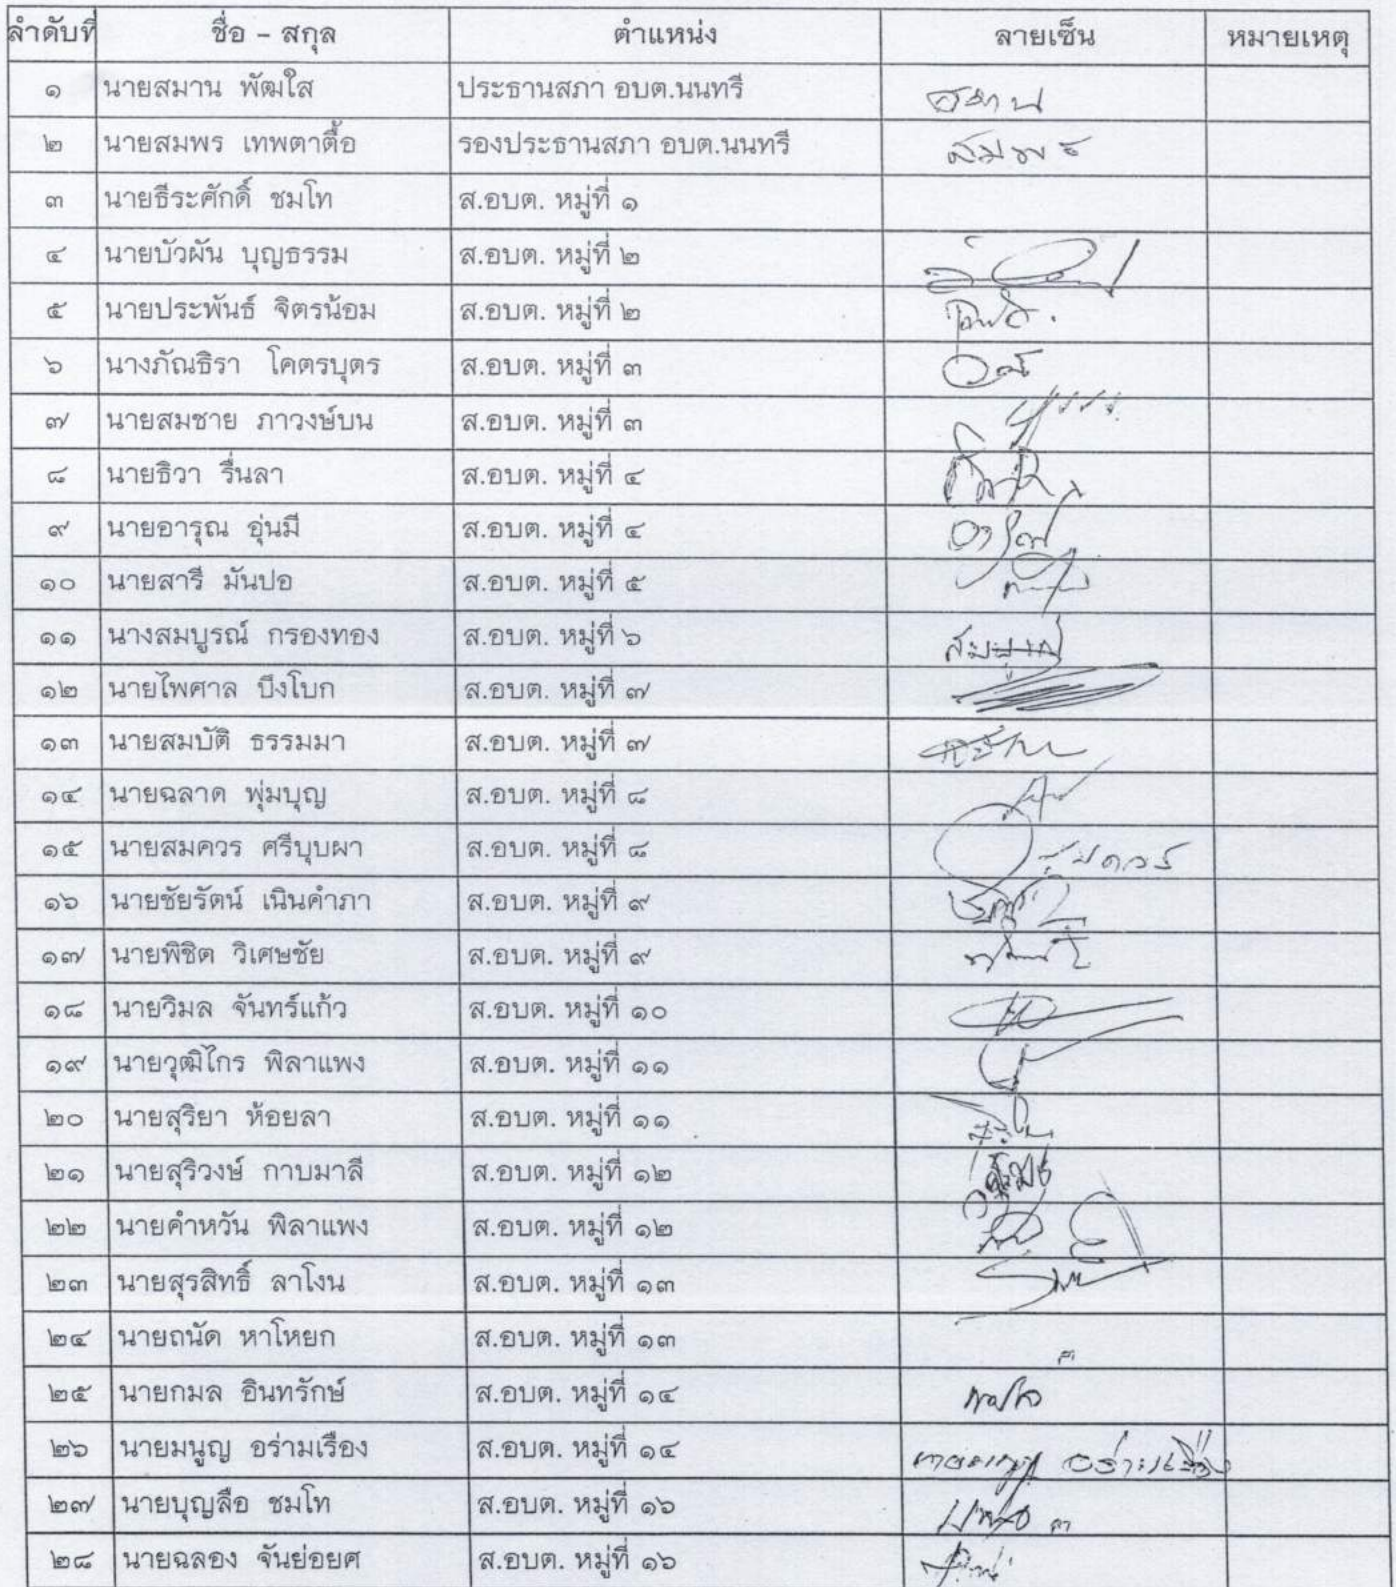 ลำดับที่ ชื่อ - สกุล ตำแหน่ง ลายเซ็น หมายเหตุ
๑ นายสมาน พัฒใส ประธานสภา อบต.นนทรี สมาน
๒ นายสมพร เทพตาตื้อ รองประธานสภา อบต.นนทรี สมพร
๓ นายธีระศักดิ์ ชมโท ส.อบต. หมู่ที่ ๑
๔ นายบัวผัน บุญธรรม ส.อบต. หมู่ที่ ๒
๕ นายประพันธ์ จิตรน้อม ส.อบต. หมู่ที่ ๒
๖ นางภัณธิรา โคตรบุตร ส.อบต. หมู่ที่ ๓
๗ นายสมชาย ภาวงษ์บน ส.อบต. หมู่ที่ ๓
๘ นายธิวา รื่นลา ส.อบต. หมู่ที่ ๔
๙ นายอารุณ อุ่นมี ส.อบต. หมู่ที่ ๔ อารุณ
๑๐ นายสารี มันปอ ส.อบต. หมู่ที่ ๕
๑๑ นางสมบูรณ์ กรองทอง ส.อบต. หมู่ที่ ๖
๑๒ นายไพศาล บึงโบก ส.อบต. หมู่ที่ ๗
๑๓ นายสมบัติ ธรรมมา ส.อบต. หมู่ที่ ๗
๑๔ นายฉลาด พุ่มบุญ ส.อบต. หมู่ที่ ๘
๑๕ นายสมควร ศรีบุบผา ส.อบต. หมู่ที่ ๘ สมควร
๑๖ นายชัยรัตน์ เนินคำภา ส.อบต. หมู่ที่ ๙
๑๗ นายพิชิต วิเศษชัย ส.อบต. หมู่ที่ ๙
๑๘ นายวิมล จันทร์แก้ว ส.อบต. หมู่ที่ ๑๐
๑๙ นายวุฒิไกร พิลาแพง ส.อบต. หมู่ที่ ๑๑
๒๐ นายสุริยา ห้อยลา ส.อบต. หมู่ที่ ๑๑
๒๑ นายสุริวงษ์ กาบมาลี ส.อบต. หมู่ที่ ๑๒
๒๒ นายคำหวัน พิลาแพง ส.อบต. หมู่ที่ ๑๒
๒๓ นายสุรสิทธิ์ ลาโงน ส.อบต. หมู่ที่ ๑๓
๒๔ นายถนัด หาโหยก ส.อบต. หมู่ที่ ๑๓
๒๕ นายกมล อินทรักษ์ ส.อบต. หมู่ที่ ๑๔
๒๖ นายมนูญ อร่ามเรือง ส.อบต. หมู่ที่ ๑๔ นายมนูญ อร่ามเรือง
๒๗ นายบุญลือ ชมโท ส.อบต. หมู่ที่ ๑๖
๒๘ นายฉลอง จันย่อยศ ส.อบต. หมู่ที่ ๑๖